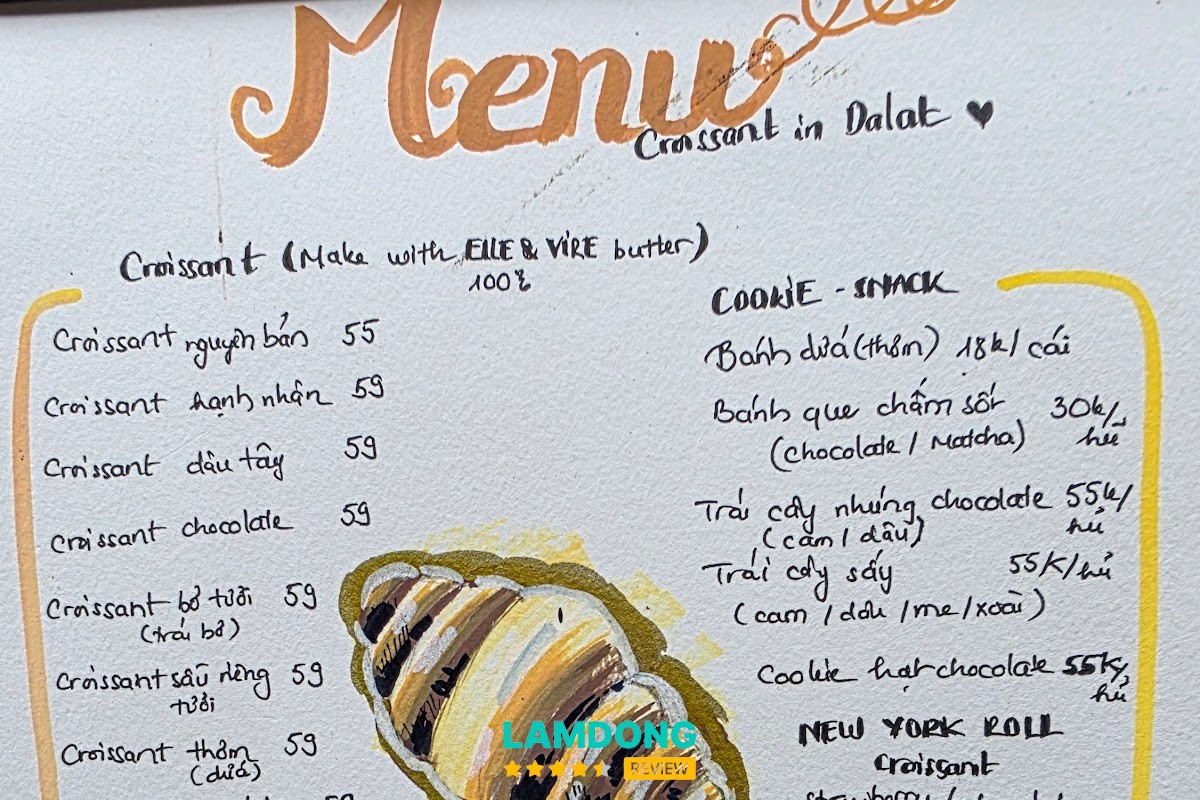 Menu
Croissant in Dalat ♥
Croissant (Make with ELLE & VIRE butter)
100%
Croissant nguyên bản 55
Croissant hạnh nhân 59
Croissant dâu tây 59
Croissant chocolate 59
Croissant bơ tươi 59
(trái bơ)
Croissant sầu riêng 59
tươi
Croissant thơm 59
(dứa)
59
COOKIE - SNACK
Bánh dứa (thơm) 18k/ cái
Bánh que chấm sốt 30k/
(chocolate / Matcha) hũ
Trái cây nhúng chocolate 55k/
(cam / dâu) hũ
Trái cây sấy 55K/hủ
(cam / dâu / me / xoài)
Cookie hạt chocolate 55k/
hủ
NEW YORK ROLL
Croissant
LAMDONG
REVIEW